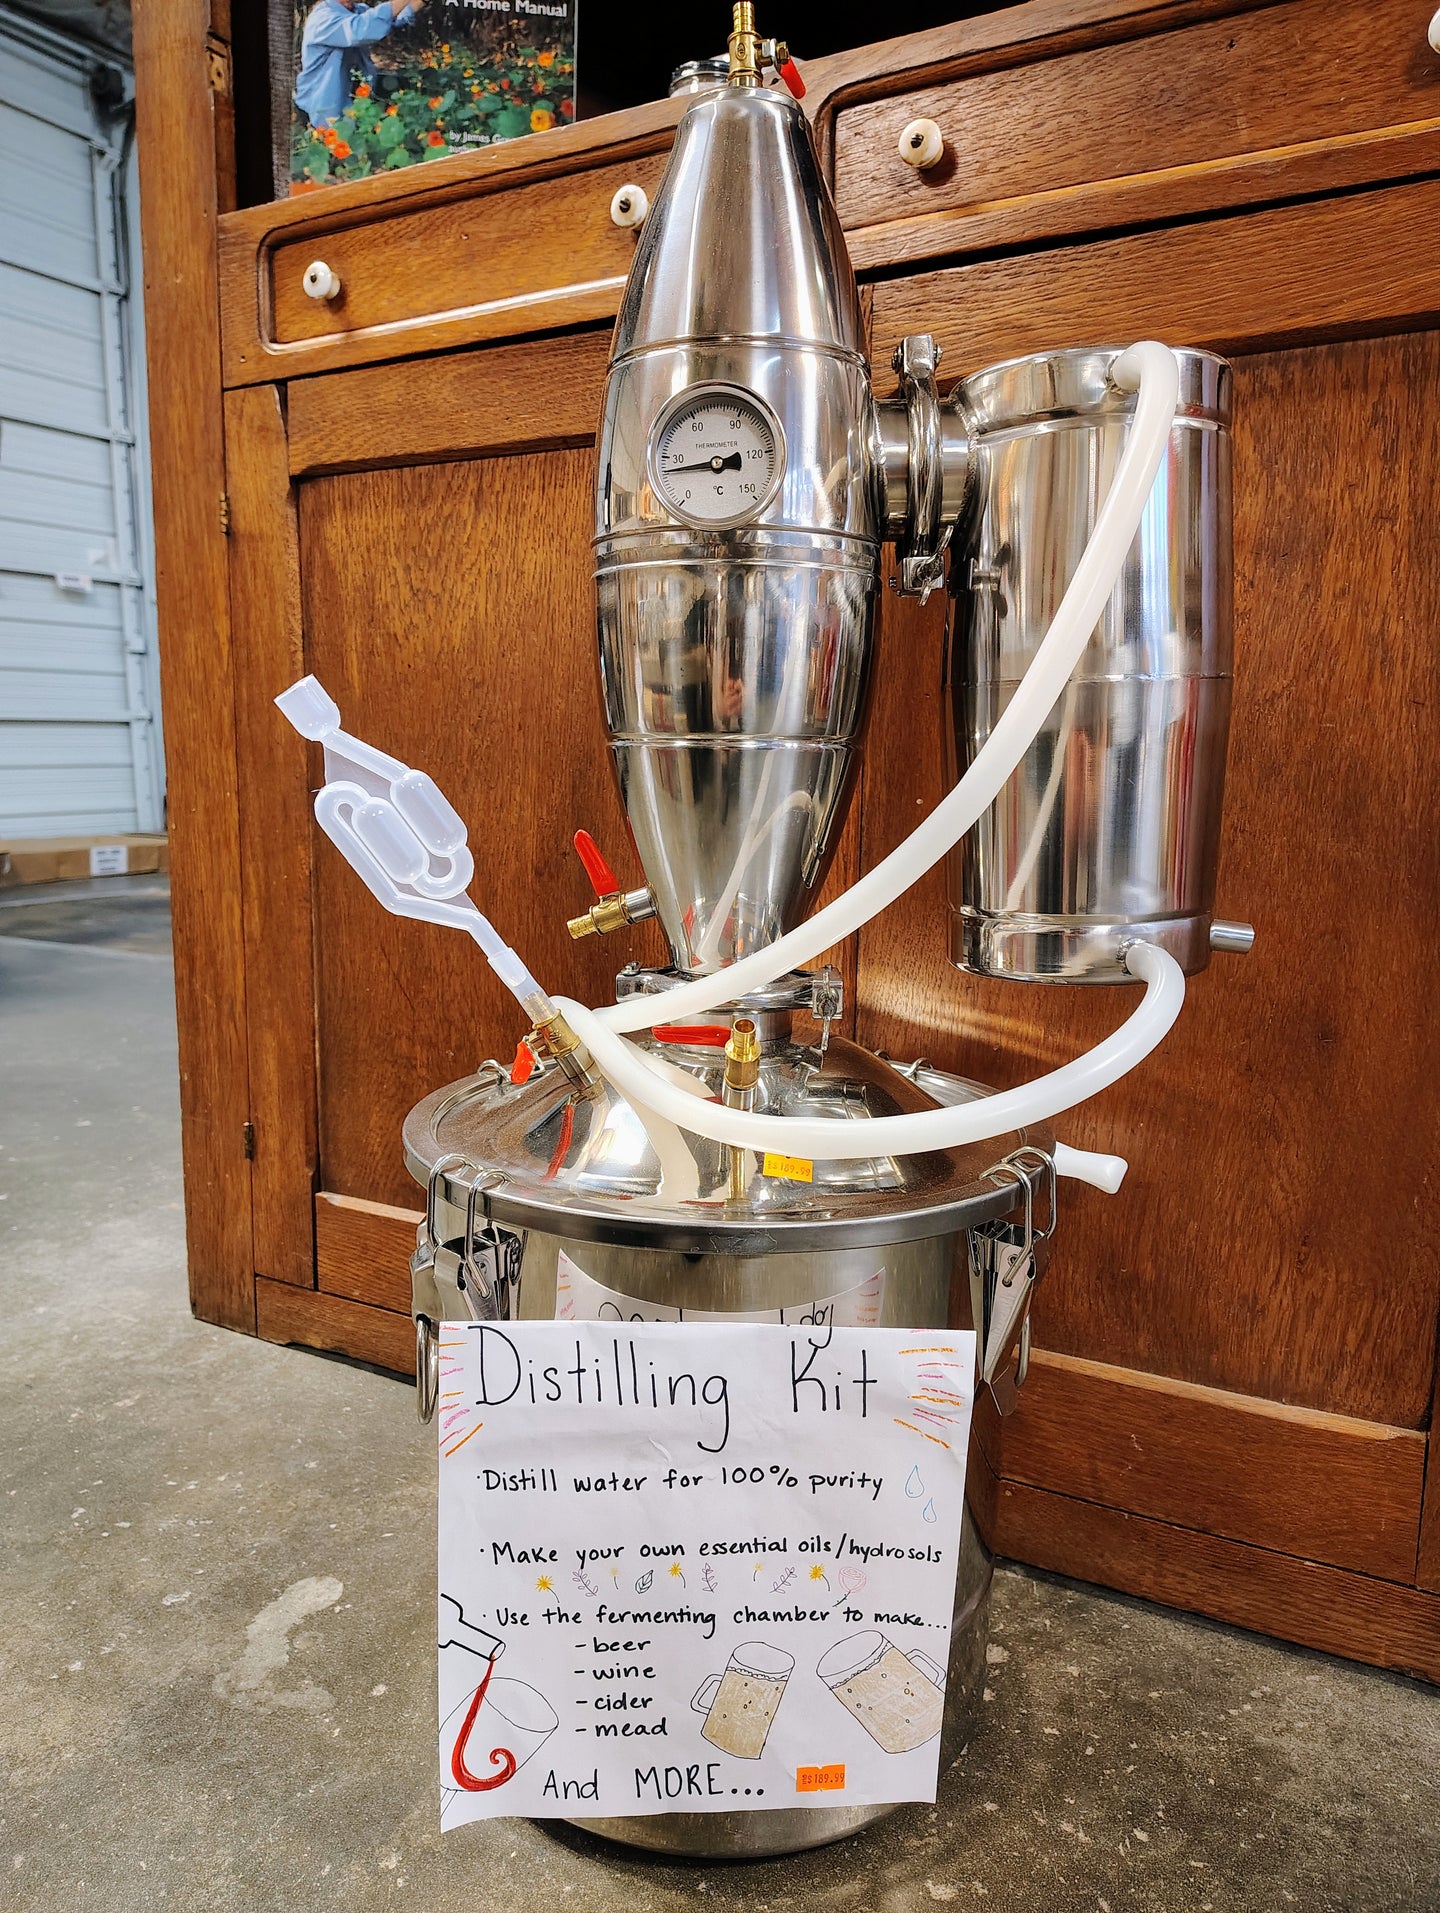 A Home Manual
by James
60
90
THERMOMETER
30
120
0
°C
150
$189.99
Distilling Kit
· Distill water for 100% purity
· Make your own essential oils/hydrosols
· Use the fermenting chamber to make...
- beer
- wine
- cider
- mead
And MORE...
$189.99